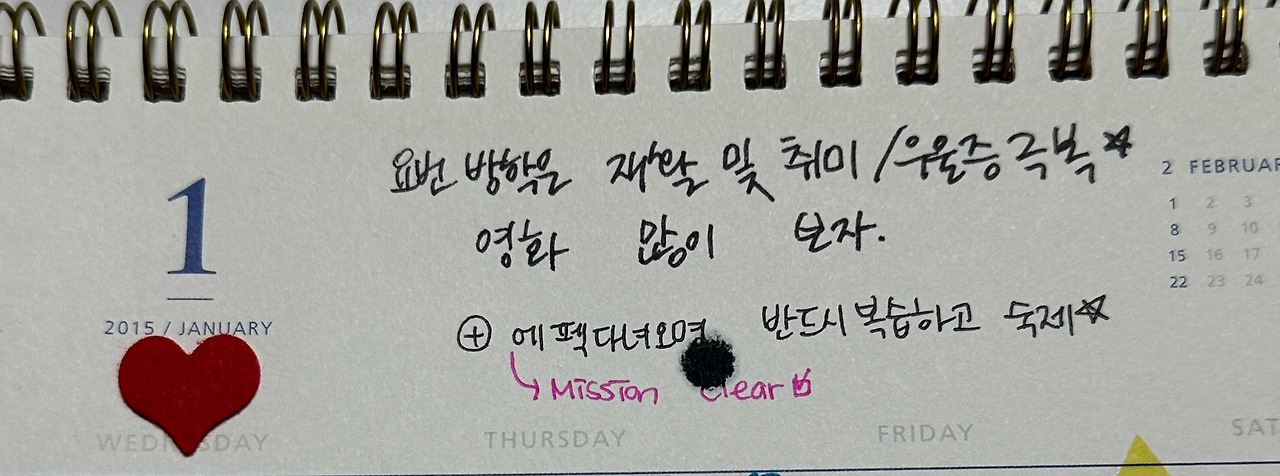 요번 방학은 재활 및 취미 /우울증 극복☆
영화 많이 보자.
1
2015 / JANUARY
⊕ 에펙다녀오면 반드시 복습하고 숙제☆
↳ Mission clear
2 FEBRUAR
1 2 3
8 9 10
15 16 17
22 23 24
WEDNESDAY THURSDAY FRIDAY SAT